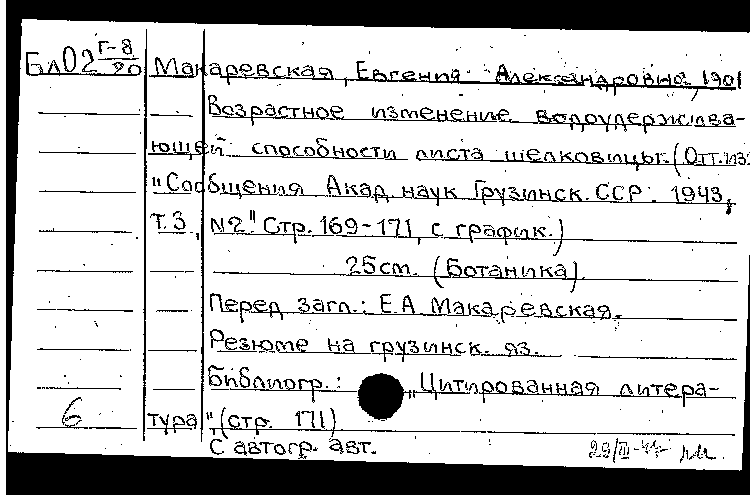 Бл02 Г-8/20 Макаревская, Евгения Александровна, 1901
Возрастное изменение водоудержива-
ющей способности листа шелковицы. (Отт. из:
"Сообщения Акад. наук Грузинск. ССР. 1943,
т. 3, №2". Стр. 169-171, с график.)
25 cm. (Ботаника).
Перед загл.: Е.А. Макаревская.
Резюме на грузинск. яз.
Библиогр.: "Цитированная литера-
6 тура", (стр. 171)
С автогр. авт.